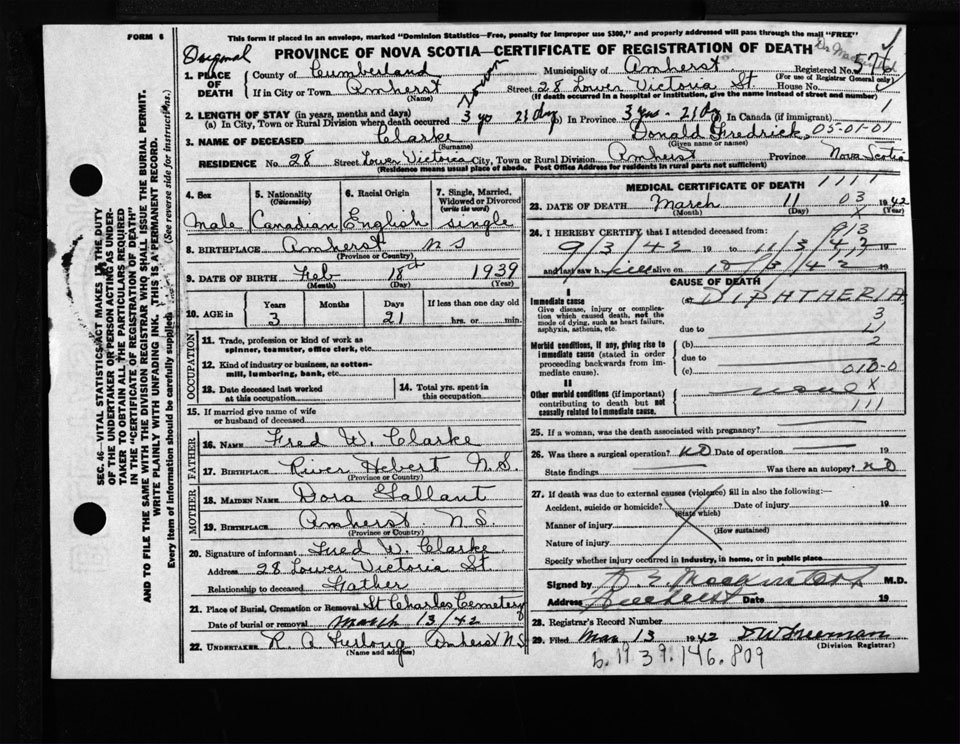 FORM 6
This form if placed in an envelope, marked "Dominion Statistics—Free, penalty for improper use $300," and properly addressed will pass through the mail "FREE"
Original
PROVINCE OF NOVA SCOTIA—CERTIFICATE OF REGISTRATION OF DEATH
Registered No. 576
(For use of Registrar General only)
1. PLACE OF DEATH
County of Cumberland Municipality of Amherst
If in City or Town Amherst Street 28 Lower Victoria St. House No.
(Name) (If death occurred in a hospital or institution, give the name instead of street and number)
2. LENGTH OF STAY (in years, months and days)
(a) In City, Town or Rural Division where death occurred 3 yrs 21 dys In Province 3 yrs - 21 dys In Canada (if immigrant)
3. NAME OF DECEASED Clarke Donald Fredrick 05-01-01
(Surname) (Given name or names)
RESIDENCE No. 28 Street Lower Victoria City, Town or Rural Division Amherst Province Nova Scotia
(Residence means usual place of abode. Post Office Address for residents in rural parts not sufficient)
4. Sex Male
5. Nationality (Citizenship) Canadian
6. Racial Origin English
7. Single, Married, Widowed or Divorced (write the word) single
8. BIRTHPLACE Amherst N S
(Province or Country)
9. DATE OF BIRTH Feb 18th 1939
(Month) (Day) (Year)
10. AGE in Years 3 Months Days 21 If less than one day old hrs. or min.
OCCUPATION
11. Trade, profession or kind of work as spinner, teamster, office clerk, etc.
12. Kind of industry or business, as cotton-mill, lumbering, bank, etc.
13. Date deceased last worked at this occupation
14. Total yrs. spent in this occupation
15. If married give name of wife or husband of deceased
FATHER
16. NAME Fred W. Clarke
17. BIRTHPLACE River Hebert N.S.
(Province or Country)
MOTHER
18. MAIDEN NAME Dora Gallant
19. BIRTHPLACE Amherst N.S.
(Province or Country)
20. Signature of informant Fred W. Clarke
Address 28 Lower Victoria St
Relationship to deceased Father
21. Place of Burial, Cremation or Removal St Charles Cemetery
Date of burial or removal March 13/42
22. UNDERTAKER R. A. Furlong Amherst N S
(Name and address)
MEDICAL CERTIFICATE OF DEATH 1111
23. DATE OF DEATH March 11 03 1942
(Month) (Day) X (Year)
24. I HEREBY CERTIFY that I attended deceased from:
9/3/42 19 to 11/3/42 19
and last saw h alive on 10/3/42 19
CAUSE OF DEATH
I
Immediate cause (a) DIPHTHERIA
Give disease, injury or complication which caused death, not the mode of dying, such as heart failure, asphyxia, asthenia, etc.
3
due to 4
Morbid conditions, if any, giving rise to immediate cause (stated in order proceeding backwards from immediate cause).
(b) 2
due to
(c) 010-0
II
Other morbid conditions (if important) contributing to death but not causally related to immediate cause.
none X
111
25. If a woman, was the death associated with pregnancy?
26. Was there a surgical operation? NO Date of operation 19
State findings Was there an autopsy? NO
27. If death was due to external causes (violence) fill in also the following:—
Accident, suicide or homicide? Date of injury 19
(State which)
Manner of injury
(How sustained)
Nature of injury
Specify whether injury occurred in industry, in home, or in public place
Signed by M.D.
Address Amherst Date 19
28. Registrar's Record Number
29. Filed Mar 13 1942 D W Freeman
(Division Registrar)
b. 1939.146.809
SEC. 46—VITAL STATISTICS ACT MAKES IT THE DUTY OF THE UNDERTAKER OR PERSON ACTING AS UNDERTAKER TO OBTAIN ALL THE PARTICULARS REQUIRED IN THE "CERTIFICATE OF REGISTRATION OF DEATH" AND TO FILE THE SAME WITH THE DIVISION REGISTRAR WHO SHALL ISSUE THE BURIAL PERMIT.
WRITE PLAINLY WITH UNFADING INK. THIS IS A PERMANENT RECORD.
Every item of information should be carefully supplied (See reverse side for instructions.)